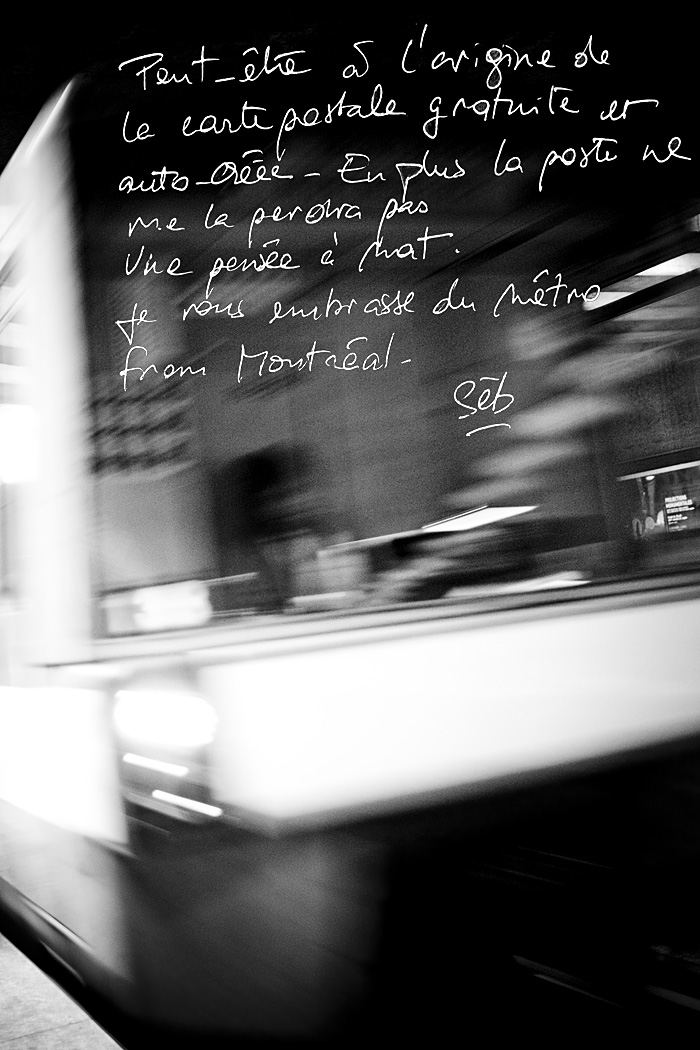 Peut-être à l'origine de
la carte postale gratuite et
auto-créée - En plus la poste ne
me la perdra pas
Une pensée à Mat.
Je vous embrasse du métro
from Montréal -
Séb
PROJECTIONS
MONUMENTALES